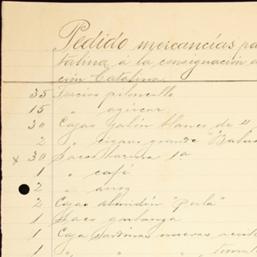 Pedido mercancías pa
Salina á la consignación d
ción Catalina.
35 Tercios piloncillo
15 " azúcar
30 Cajas jabón blanco de
2 " cigarros grande "Baba
x 30 Sacos harina 1a
1 " café
2 " arroz
2 Cajas almidón "perla"
1 Saco garbanzo
1 Caja Sardinas nuevas
1 "